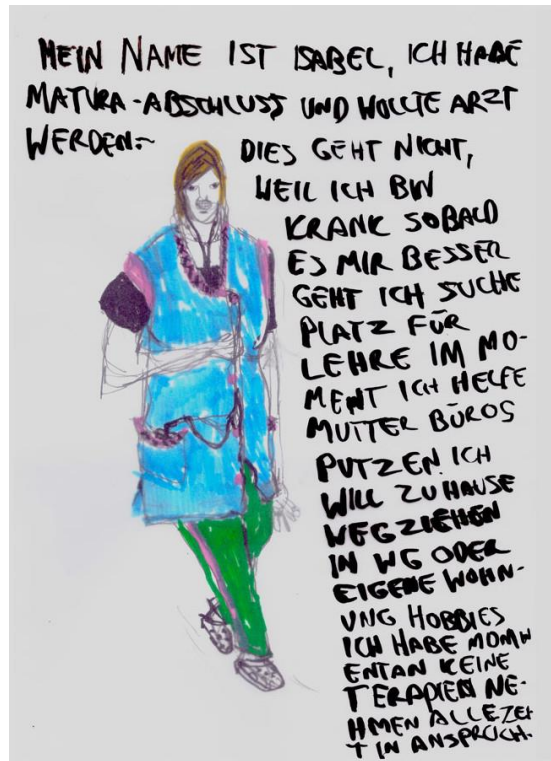 MEIN NAME IST ISABEL, ICH HABE
MATURA-ABSCHLUSS UND WOLLTE ARZT
WERDEN~
DIES GEHT NICHT,
WEIL ICH BIN
KRANK SOBALD
ES MIR BESSER
GEHT ICH SUCHE
PLATZ FÜR
LEHRE IM MO-
MENT ICH HELFE
MUTTER BÜROS
PUTZEN ICH
WILL ZU HAUSE
WEGZIEHEN
IN WG ODER
EIGENE WOHN-
UNG HOBBIES
ICH HABE MOMW
ENTAN KEINE
TERAPIEN NE-
HMEN ALLE ZEI
T IN ANSPRUCH.